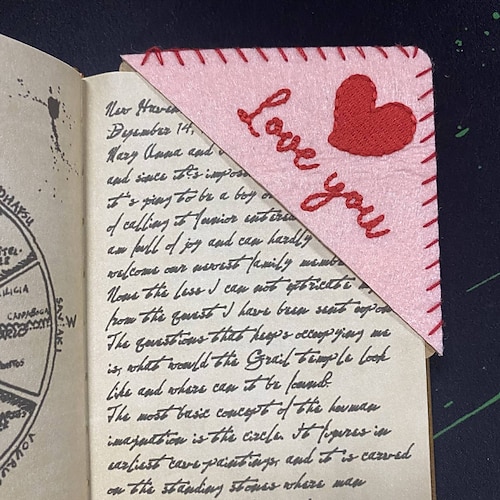 Love you
New Haven
December 14,
Mary Anna and
and since it's impos
it's going to be a boy o
of calling it Junior entered
am full of joy and can hardly
welcome our newest family membe
None the less I can not extricate
from the quest I have been sent upon
The questions that keeps occupying me
is, what would the Grail temple look
like and where can it be found.
The most basic concept of the human
imagination is the circle. It figures in
earliest cave paintings, and it is carved
on the standing stones where man
CAPPADOCIA